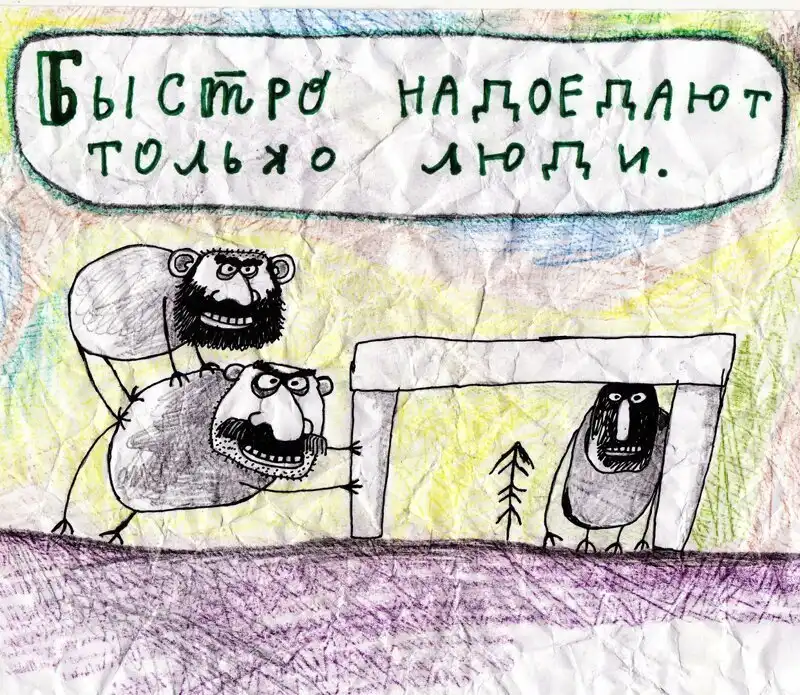 Быстро надоедают
только люди.